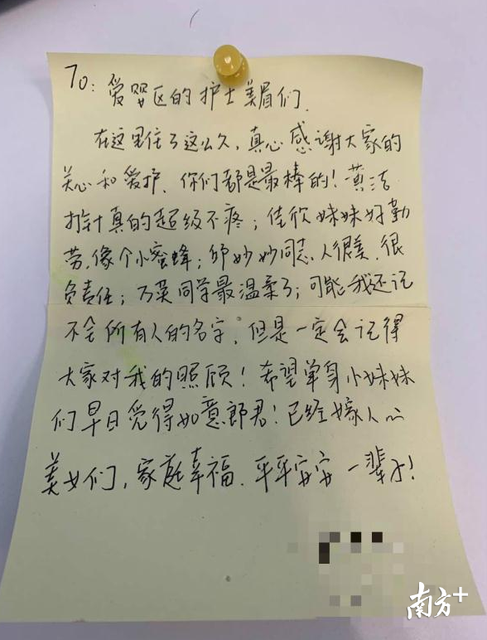 To: 爱婴区的护士美眉们.
在这里住了这么久, 真心感谢大家的
关心和爱护. 你们都是最棒的! 黄洁
打针真的超级不疼; 佳欣妹妹好勤
劳, 像个小蜜蜂; 邱妙妙同志人很美, 很
负责任; 万英同学最温柔了; 可能我还记
不全所有人的名字, 但是一定会记得
大家对我的照顾! 希望单身小妹妹
们早日觅得如意郎君! 已经嫁人
美女们, 家庭幸福. 平平安安一辈子!
南方+